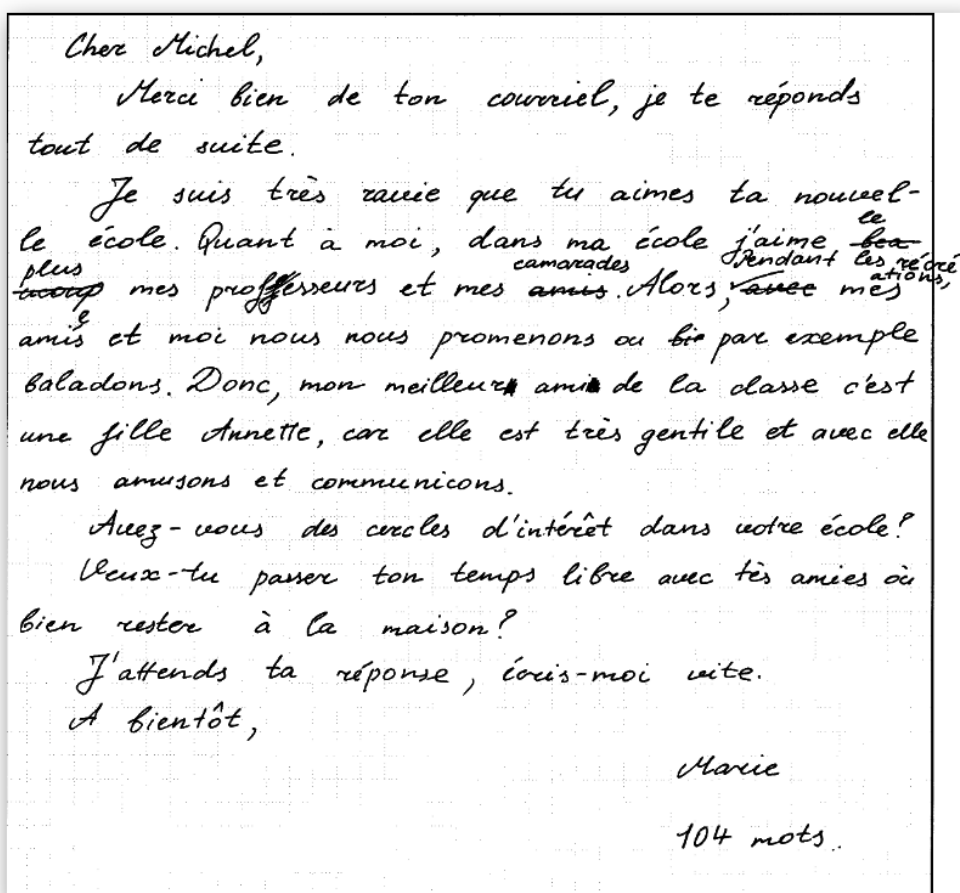 Cher Michel,
Merci bien de ton courriel, je te réponds
tout de suite.
Je suis très ravie que tu aimes ta nouvel-
le école. Quant à moi, dans ma école j'aime le
plus mes professeurs et mes camarades. Alors, Pendant les récréations, mes
amies et moi nous nous promenons ou par exemple
baladons. Donc, mon meilleur ami de la classe c'est
une fille Annette, car elle est très gentile et avec elle
nous amusons et communicons.
Avez-vous des cercles d'intérêt dans votre école?
Veux-tu passer ton temps libre avec tès amies où
bien rester à la maison?
J'attends ta réponse, écris-moi vite.
A bientôt,
Marie
104 mots.